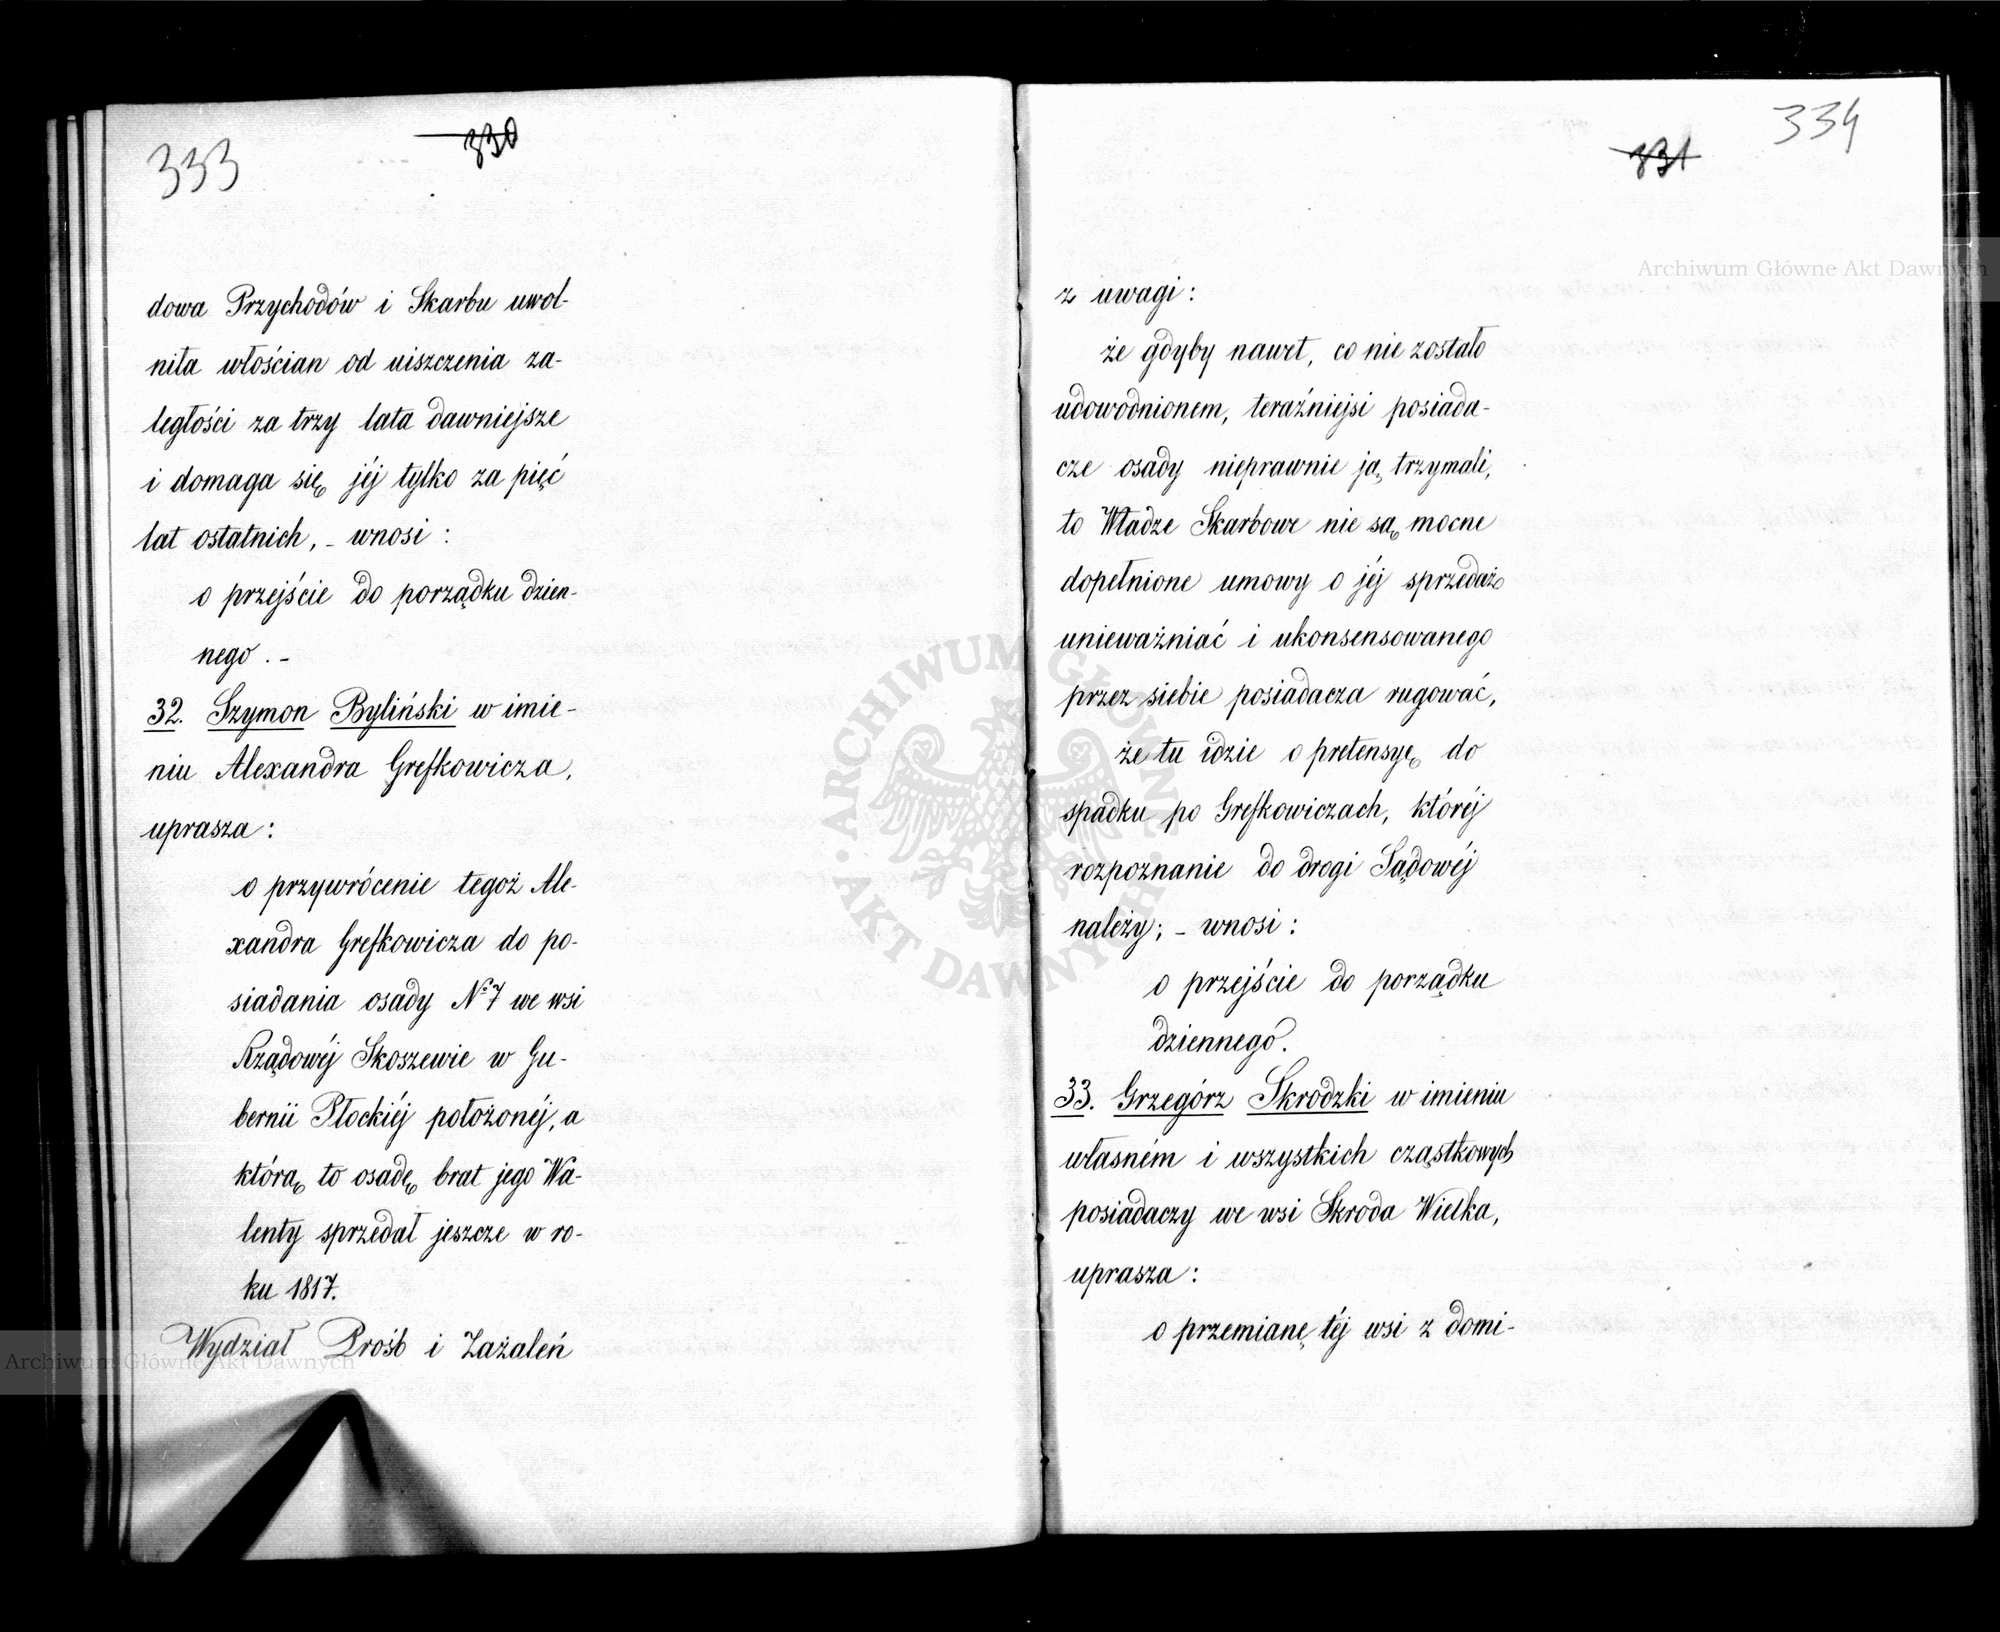 333
330
dowa Przychodów i Skarbu uwol-
niła włościan od uiszczenia za-
ległości za trzy lata dawniejsze
i domaga się jéj tylko za pięć
lat ostatnich, - wnosi :
o przejście do porządku dzien-
nego. -
32. Szymon Byliński w imie-
niu Alexandra Grefkowicza,
uprasza :
o przywrócenie tegoż Ale-
xandra Grefkowicza do po-
siadania osady Nº 7 we wsi
Rządowéj Skoszewie w Gu-
bernii Płockiéj położonéj, a
którą to osadę brat jego Wa-
lenty sprzedał jeszcze w ro-
ku 1817.
Wydział Próśb i Zażaleń
334
331
z uwagi :
że gdyby nawet, co nie zostało
udowodnionem, teraźniejsi posiada-
cze osady nieprawnie ją trzymali,
to Władze Skarbowe nie są mocne
dopełnione umowy o jéj sprzedaż
unieważniać i ukonsensowanego
przez siebie posiadacza rugować,
że tu idzie o pretensyę do
spadku po Grefkowiczach, któréj
rozpoznanie do drogi Sądowéj
należy; - wnosi :
o przejście do porządku
dziennego.
33. Grzegórz Skrodzki w imieniu
własném i wszystkich cząstkowych
posiadaczy we wsi Skroda Wielka,
uprasza :
o przemianę téj wsi z domi-
Archiwum Główne Akt Dawnych
Archiwum Główne Akt Dawnych
ARCHIWUM GŁÓWNE · AKT DAWNYCH ·